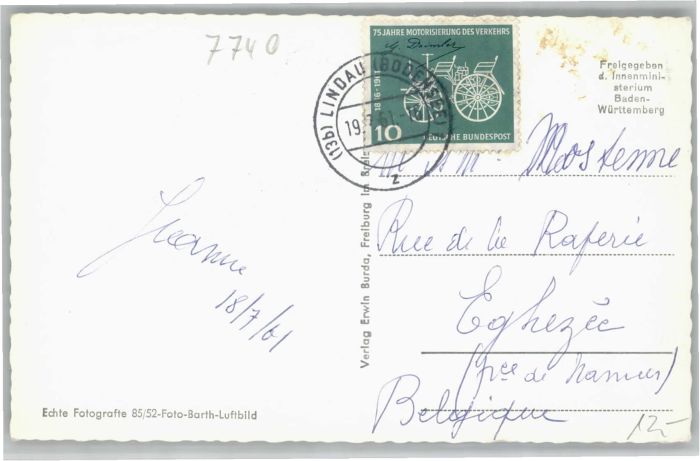 7740
75 JAHRE MOTORISIERUNG DES VERKEHRS
G. Daimler
1886-1961
10
DEUTSCHE BUNDESPOST
(13b) LINDAU (BODENSEE)
z
Freigegeben
d. Innenmini-
sterium
Baden-
Württemberg
Jeanne
18/7/61
Verlag Erwin Burda, Freiburg im
Rue de la Raperie
Eghezée
(Pce de Namur)
Belgique
12-
Echte Fotografie 85/52-Foto-Barth-Luftbild